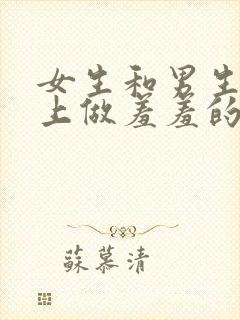 女生和男生
上做羞羞的
蘇慕清